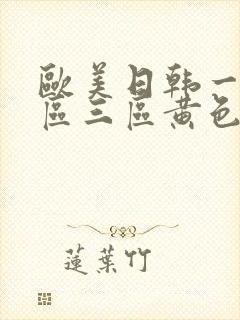 歐美日韩一
區三區黃色
蓮葉竹